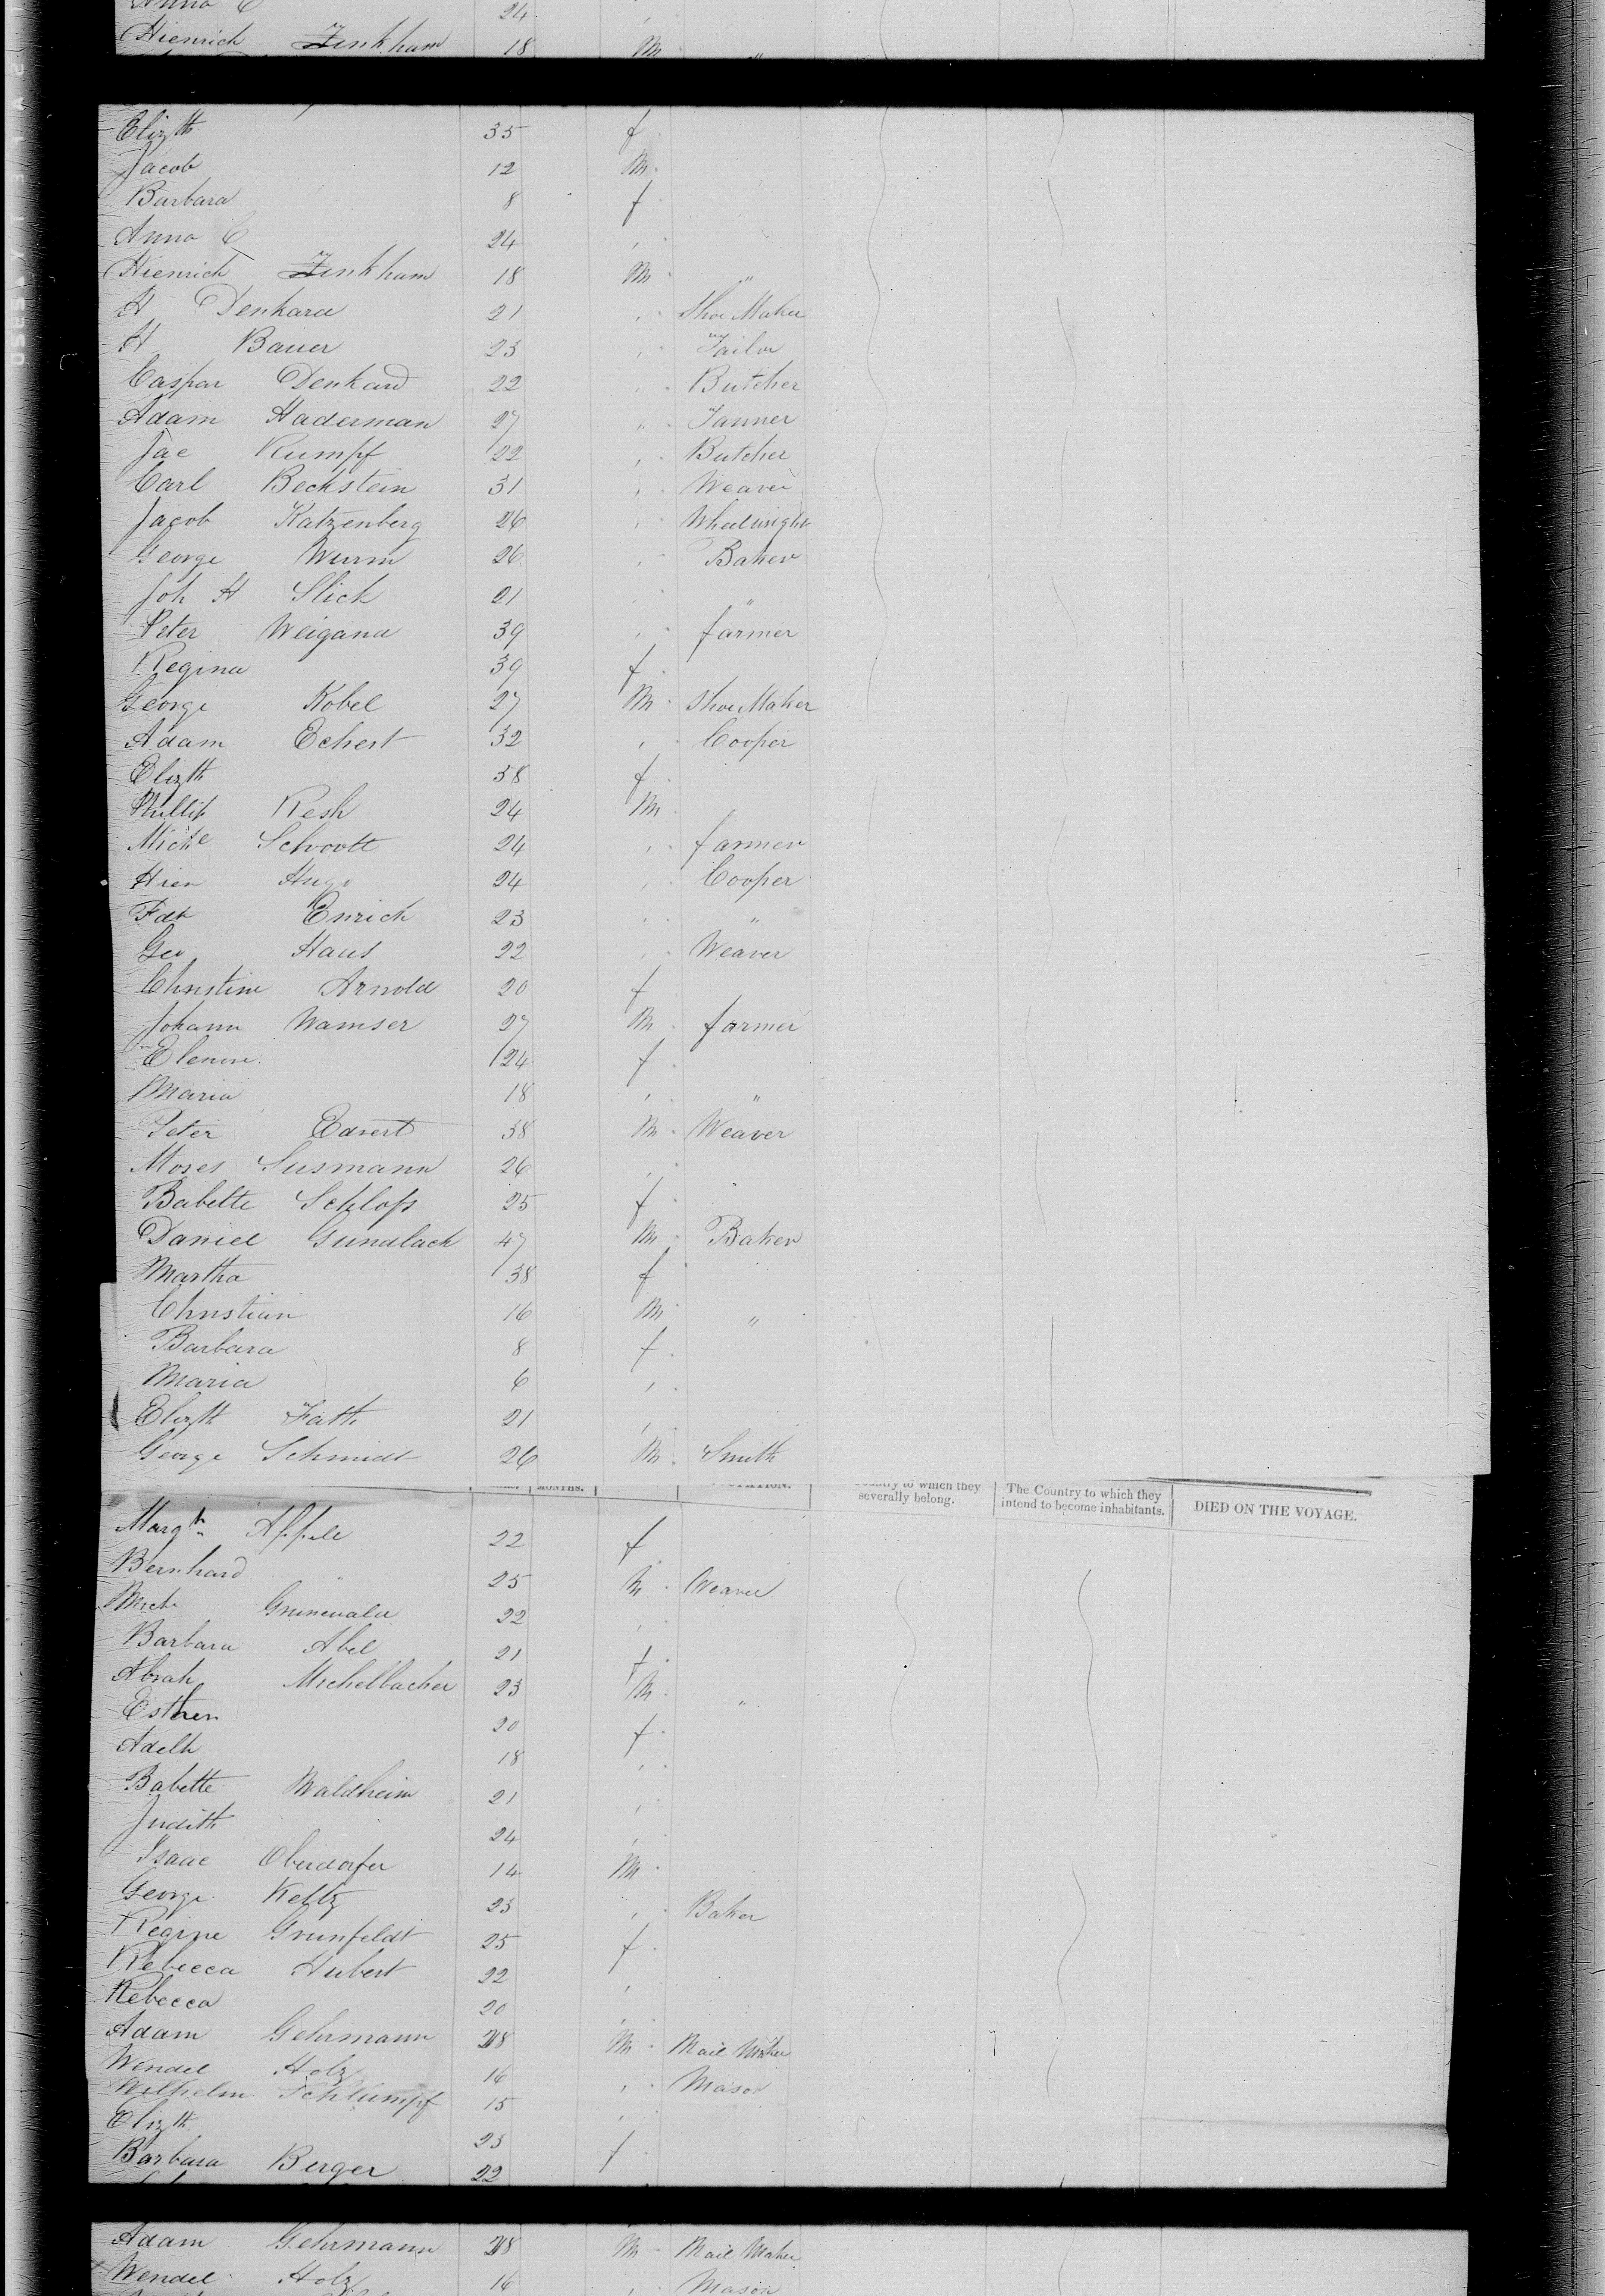 Anna C 24 "
Hienrich Zinkham 18 M "
Elizth 35 f
Jacob 12 M
Barbara 8 f
Anna C 24 "
Hienrich Zinkham 18 M "
H Denhard 21 " Shoe Maker
H Bauer 23 " Tailor
Caspar Denhard 22 " Butcher
Adam Haderman 27 " Tanner
Jac Kumpf 22 " Butcher
Carl Beckstein 31 " Weaver
Jacob Katzenberg 26 " Wheelwright
George Wurm 26 " Baker
Joh H Slick 21 " "
Peter Weigand 39 " farmer
Regina 39 f
George Kobel 27 M Shoe Maker
Adam Echert 32 " Cooper
Elizth 38 f
Phillip Resh 24 M
Miche Schvott 24 " farmer
Hien Hugo 24 " Cooper
Fdk Enrich 23 " "
Geo Haus 22 " Weaver
Christine Arnold 20 f
Johann Wamser 27 M farmer
Elenore 24 f
Maria 18 " "
Peter Edvert 38 M Weaver
Moses Susmann 26 "
Babette Schloss 25 f
Daniel Gundlach 47 M Baker
Martha 38 f
Christian 16 M "
Barbara 8 f
Maria 6 "
Elizth Fath 21 "
George Schmidt 26 M Smith
MONTHS. Country to which they severally belong. The Country to which they intend to become inhabitants. DIED ON THE VOYAGE.
Margth Appele 22 f
Bernhard " 25 M Weaver
Mich Grunewald 22 "
Barbara Abel 21 f
Abrah Michelbacher 23 M "
Esther 20 f
Adelh 18 "
Babette Waldheim 21 "
Judith 24 "
Isaac Oberdorfer 14 M
George Keltz 23 " Baker
Regine Grunfeldt 25 f
Rebecca Hubert 22 "
Rebecca 20 "
Adam Gehrmann 28 M Mail Maker
Wendel Holz 16 " Mason
Wilhelm Schlumpf 15 "
Elizth 23 f
Barbara Berger 22
Adam Gehrmann 28 M Mail Maker
Wendel Holz 16 " Mason